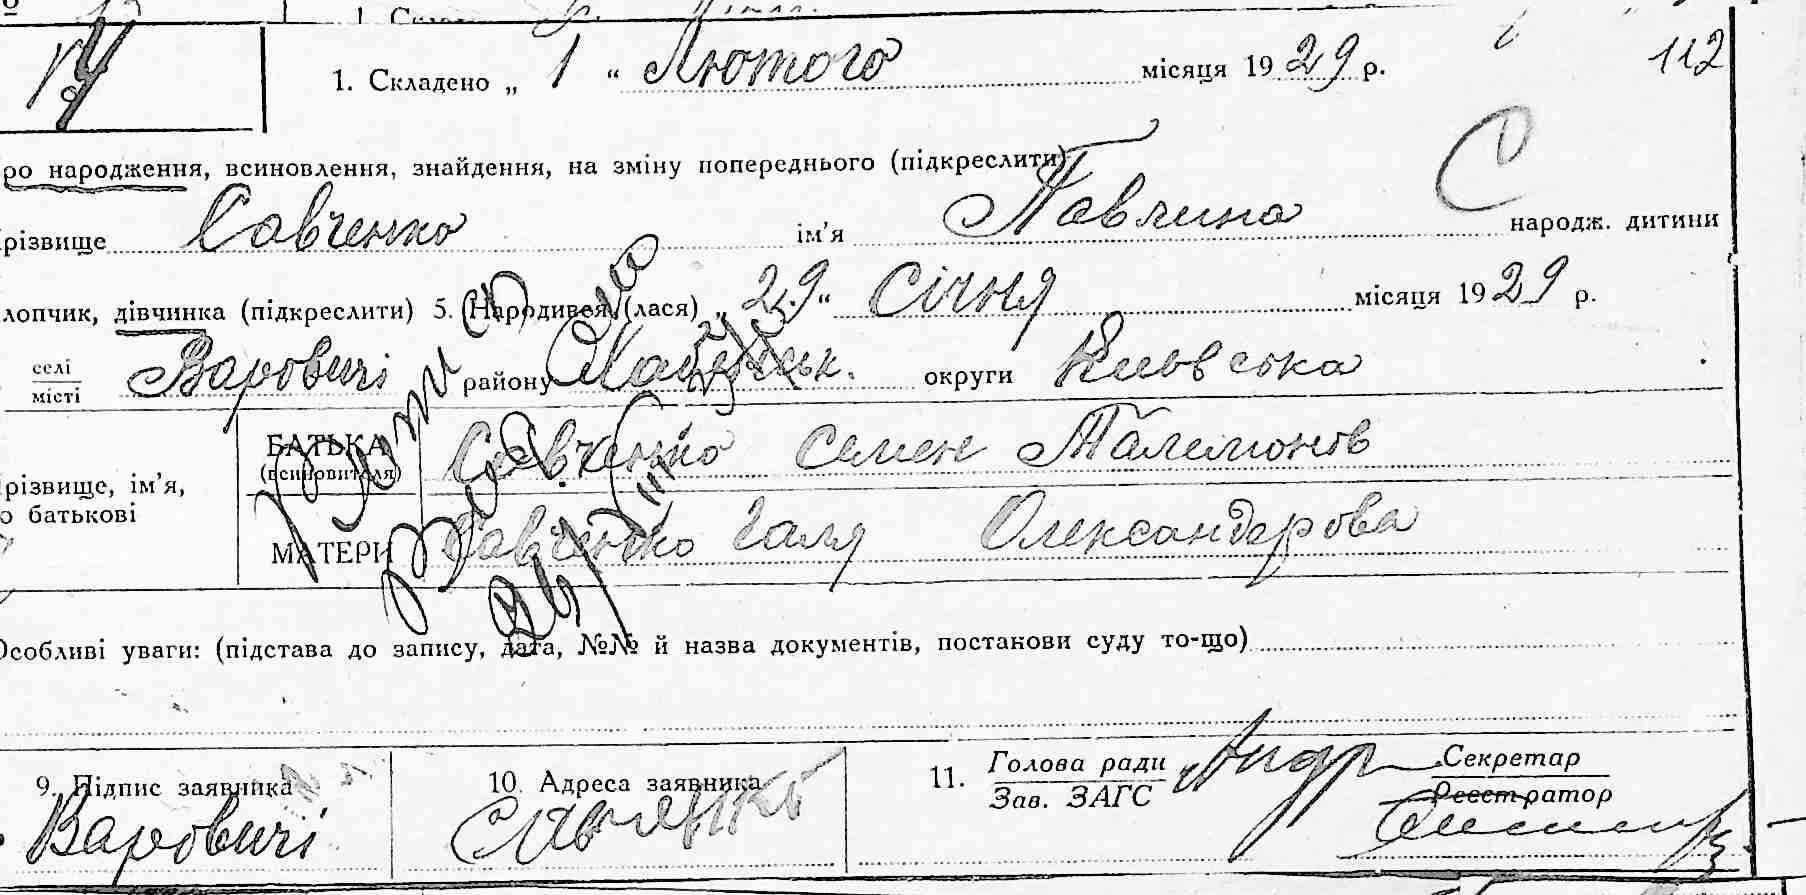 14
1. Складено „ 1 “ Лютого місяця 1929 р. 112
ро народження, всиновлення, знайдення, на зміну попереднього (підкреслити) С
різвище Савченко ім’я Павлина народж. дитини
лопчик, дівчинка (підкреслити) 5. Народився (лася) „ 29 “ Січня місяця 1929 р.
селі
місті Варовичі району Хабенськ. округи Київська
БАТЬКА
(всиновителя) Савченко Семен Талимонов
різвище, ім’я,
о батькові
МАТЕРИ Савченко Галя Олександрова
Особливі уваги: (підстава до запису, дата, №№ й назва документів, постанови суду то-що)
9. Підпис заявника 10. Адреса заявника 11. Голова ради Секретар
Зав. ЗАГС Реєстратор
Варовичі Савченко